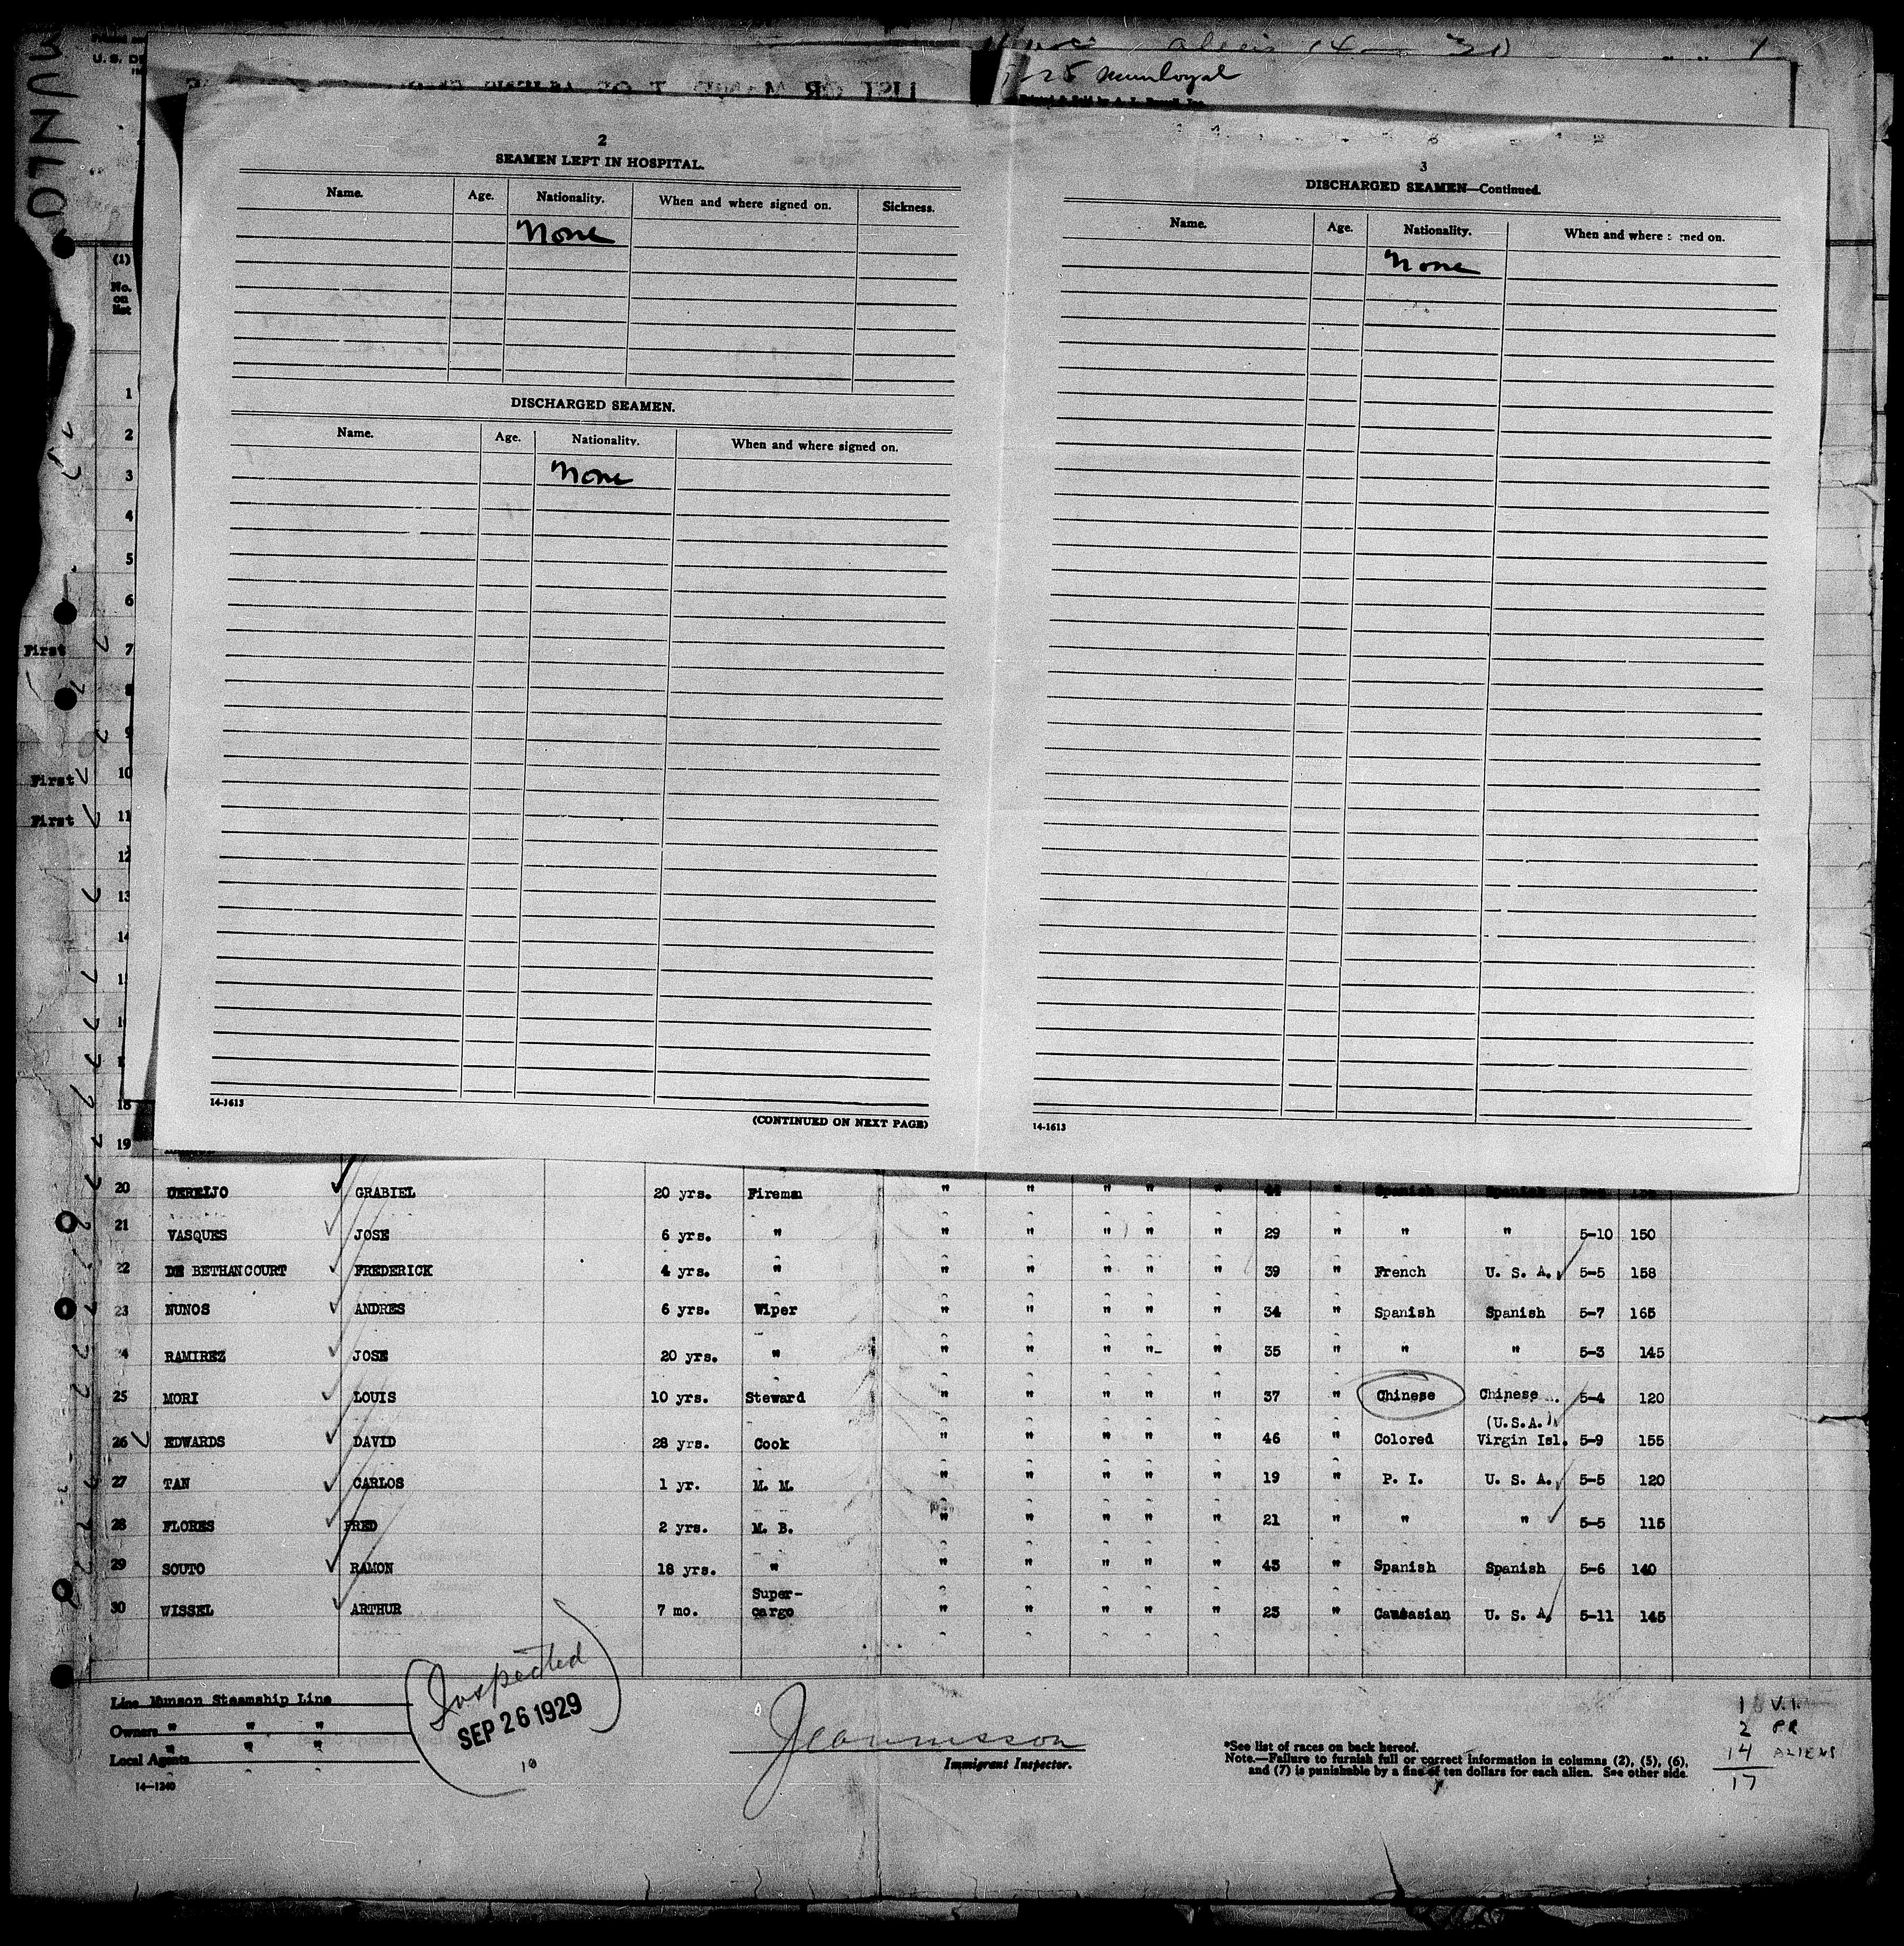 MUNLO
U. S. DE
aliens 14 — 30
25 Munloyal
2
SEAMEN LEFT IN HOSPITAL.
Name. Age. Nationality. When and where signed on. Sickness.
None
DISCHARGED SEAMEN.
Name. Age. Nationality. When and where signed on.
None
14-1613
(CONTINUED ON NEXT PAGE)
3
DISCHARGED SEAMEN—Continued.
Name. Age. Nationality. When and where ned on.
None
14-1613
(1)
No. on list
1
2
3
4
5
6
First 7
8
9
First 10
First 11
12
13
14
18
19
20 CEREIJO GRABIEL 20 yrs. Fireman " " " " " 44 " Spanish Spanish
21 VASQUES JOSE 6 yrs. " " " " " " 29 " " " 5-10 150
22 DE BETHANCOURT FREDERICK 4 yrs. " " " " " " 39 " French U. S. A. 5-5 158
23 NUNOS ANDRES 6 yrs. Wiper " " " " " 34 " Spanish Spanish 5-7 165
4 RAMIREZ JOSE 20 yrs. " " " " "- " 35 " " " 5-3 145
25 MORI LOUIS 10 yrs. Steward " " " " " 37 " Chinese Chinese 5-4 120
(U.S.A.)
26 EDWARDS DAVID 28 yrs. Cook " " " " " 46 " Colored Virgin Isl. 5-9 155
27 TAN CARLOS 1 yr. M. M. " " " " " 19 " P. I. U. S. A. 5-5 120
28 FLORES FRED 2 yrs. M. B. " " " " " 21 " " " 5-5 115
29 SOUTO RAMON 18 yrs. " " " " " " 43 " Spanish Spanish 5-6 140
Super-
30 WISSEL ARTHUR 7 mo. cargo " " " " " 23 " Caucasian U. S. A. 5-11 145
Line Munson Steamship Line
Owners " " "
Local Agents " " "
14—1240
Inspected
SEP 26 1929
10
Immigrant Inspector.
*See list of races on back hereof.
Note.—Failure to furnish full or correct information in columns (2), (5), (6),
and (7) is punishable by a fine of ten dollars for each alien. See other side.
1 V.I.
2 PR
14 ALIENS
17